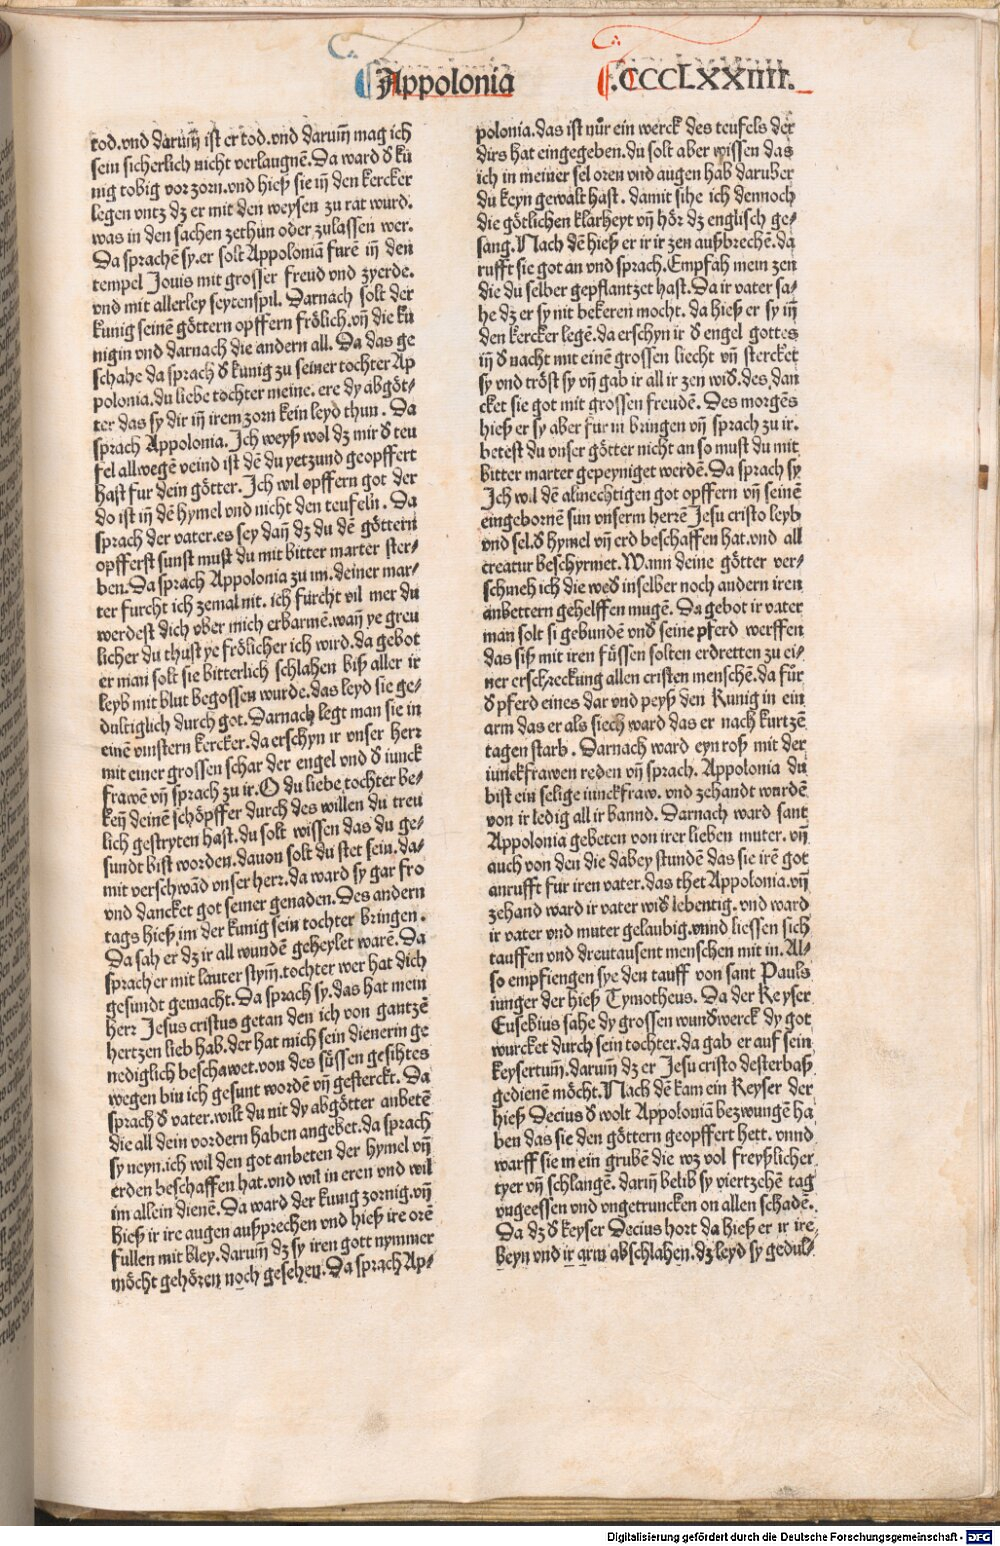 Appolonia
.CCCLXXIIII.
tod.vnd darum̄ ist er tod.vnd darum̄ mag ich
sein sicherlich nicht verlaugnē.Da ward d̕ kü
nig tobig vor zorn.vnd hieß sie in̄ den kercker
legen vntz dz er mit den weysen zu rat wurd.
was in den sachen zethün oder zulassen wer.
Da sprachē sy.er solt Appoloniā furē in̄ den
tempel Jouis mit grosser freud vnd zyerde.
vnd mit allerley seytenspil. Darnach solt der
kunig seinē göttern opffern frölich.vn̄ die kü
nigin vnd darnach die andern all. Da das ge
schahe da sprach d̕ kunig zu seiner tochter Ap
polonia.du liebe tochter meine. ere dy abgöt-
ter das sy dir in̄ irem zorn kein leyd thun. Da
sprach Appolonia.Ich weyß wol dz mir d̕ teu
fel allwegē veind ist dē du yetzund geopffert
hast fur dein götter. Ich wil opffern got der
do ist in̄ dē hymel vnd nicht den teufeln. Da
sprach der vater.es sey dan̄ dz du dē göttern
opfferst sunst must du mit bitter marter ster-
ben.Da sprach Appolonia zu im.deiner mar-
ter furcht ich zemal nit. ich fürcht vil mer du
werdest dich vber mich erbarmē.wan̄ ye greu
licher du thust ye frölicher ich wird.da gebot
er man solt sie bitterlich schlahen biß aller ir
leyb mit blut begossen wurde.das leyd sie ge-
dultiglich durch got. Darnach legt man sie in
einē vinstern kercker.da erschyn ir vnser herr
mit einer grossen schar der engel vnd d̕ iunck
frawē vn̄ sprach zu ir.O du liebe tochter be-
ken̄ deinē schöpffer durch des willen du treu
lich gestryten hast.du solt wissen das du ge-
sundt bist worden.dauon solt du stet sein.da-
mit verschwād vnser herr.da ward sy gar fro
vnd dancket got seiner genaden. Des andern
tags hieß im der kunig sein tochter bringen.
Da sah er dz ir all wundē geheylet warē. Da
sprach er mit lauter stym̄.tochter wer hat dich
gesundt gemacht. Da sprach sy.das hat mein
herr Jesus cristus getan den ich von gantzē
hertzen lieb hab.der hat mich sein dienerin ge
nediglich beschawet.von des süssen gesihtes
wegen bin ich gesunt wordē vn̄ gesterckt. Da
sprach d̕ vater.wilt du nit dy abgötter anbetē
die all dein vordern haben angebet.da sprach
sy neyn.ich wil den got anbeten der hymel vn̄
erden beschaffen hat.vnd wil in eren vnd wil
im allein dienē. Da ward der kunig zornig.vn̄
hieß ir ire augen außprechen vnd hieß ire orē
fullen mit bley.darum̄ dz sy iren gott nymmer
möcht gehören noch gesehen. Da sprach Ap-
polonia.das ist nür ein werck des teufels der
dirs hat eingegeben.du solt aber wissen das
ich in meiner sel oren vnd augen hab daruber
du keyn gewalt hast. damit sihe ich dennoch
die götlichen klarheyt vn̄ hör dz englisch ge-
sang. Nach dē hieß er ir ir zen außbrechē.da
rufft sie got an vnd sprach.Empfah mein zen
die du selber gepflantzet hast.Da ir vater sa-
he dz er sy nit bekeren mocht. da hieß er sy in̄
den kercker legē.da erschyn ir d̕ engel gottes
in̄ d̕ nacht mit einē grossen liecht vn̄ stercket
sy vnd tröst sy vn̄ gab ir all ir zen wid̕.des dan
cket sie got mit grossen freudē. Des morgēs
hieß er sy aber für in bringen vn̄ sprach zu ir.
betest du vnser götter nicht an so must du mit
bitter marter gepeyniget werdē.Da sprach sy
Ich wil dē almechtigen got opffern vn̄ seinē
eingebornē sun vnserm herrē Jesu cristo leyb
vnd sel.d̕ hymel vn̄ erd beschaffen hat.vnd all
creatur beschyrmet.Wann deine götter ver-
schmeh ich die wed̕ in selber noch andern iren
anbettern gehelffen mugē. Da gebot ir vater
man solt si gebundē vnd̕ seine pferd werffen
das siß mit iren füssen solten erdretten zu ei-
ner erschreckung allen cristen menschē.da für
d̕ pferd eines dar vnd peyß den Kunig in ein
arm das er als siech ward das er nach kurtzē
tagen starb. Darnach ward eyn roß mit der
iunckfrawen reden vn̄ sprach. Appolonia du
bist ein selige iunckfraw. vnd zehandt wurdē
von ir ledig all ir bannd. Darnach ward sant
Appolonia gebeten von irer lieben muter. vn̄
auch von den die dabey stundē das sie irē got
anrufft für iren vater.das thet Appolonia.vn̄
zehand ward ir vater wid̕ lebentig. vnd ward
ir vater vnd muter gelaubig.vnnd liessen sich
tauffen vnd dreutausent menschen mit in. Al-
so empfiengen sye den tauff von sant Pauls
iunger der hieß Tymotheus. Da der Keyser
Eusebius sahe dy grossen wund̕werck dy got
wurcket durch sein tochter.da gab er auf sein
keysertum̄.darum̄ dz er Jesu cristo desterbaß
gedienē möcht. Nach dē kam ein Keyser der
hieß Decius d̕ wolt Appoloniā bezwungē ha
ben das sie den göttern geopffert hett. vnnd
warff sie in ein grubē die wz vol freyßlicher
tyer vn̄ schlangē. darin̄ belib sy viertzehē tag
vngeessen vnd vngetruncken on allen schadē.
Da dz d̕ keyser Decius hort da hieß er ir ire
beyn vnd ir arm abschlahen.dz leyd sy gedul-
Digitalisierung gefördert durch die Deutsche Forschungsgemeinschaft - DFG